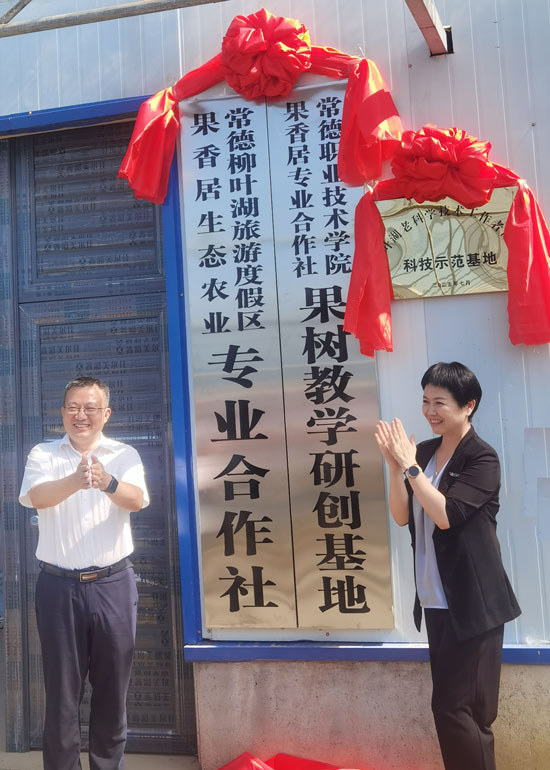 常德柳叶湖旅游度假区
果香居生态农业
专业合作社
常德职业技术学院
果香居专业合作社
果树教学研创基地
湖老科学技术工作者
科技示范基地